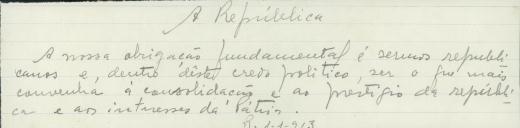 A República
A nossa obrigação fundamental é sermos republi-
canos e, dentro dêste credo politico, ser o que mais
convenha á consolidação e ao prestigio da repúbli-
ca e aos interesses da Pátria.
R. 1-1-913